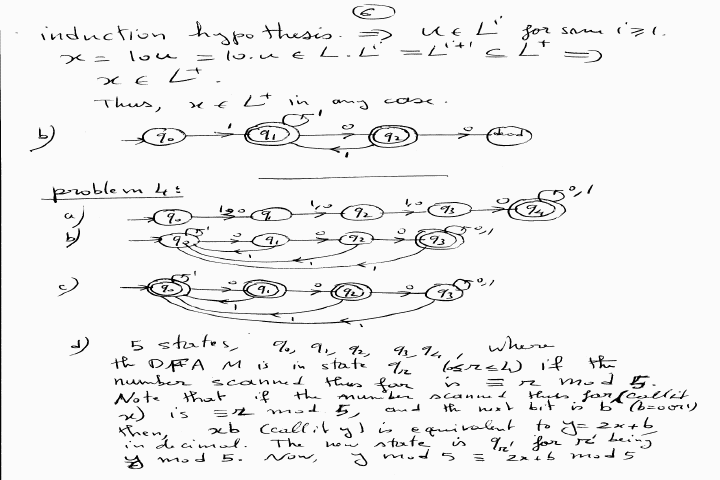 6
induction hypothesis. ⇒ u ∈ L^i for some i ≥ 1.
x = 10u = 10.u ∈ L.L^i = L^{i+1} ⊆ L^+ ⇒
x ∈ L^+.
Thus, x ∈ L^+ in any case.
b) q0 1 q1 1 0 q2 1 0 dead
problem 4:
a) q0 1,0 q1 1,0 q2 1,0 q3 0 q4 0,1
b) q0 1 0 q1 0 q2 0 q3 0,1 1 1
c) q0 1 0 q1 0 q2 0 q3 0,1 1 1
d) 5 states, q0, q1, q2, q3, q4, where
the DFA M is in state qr (0≤r≤4) if the
number scanned thus far is ≡ r mod 5.
Note that if the number scanned thus far (call it
x) is ≡ r mod 5, and the next bit is b (b=0 or 1)
then, xb (call it y) is equivalent to y = 2x+b
in decimal. The new state is qr' for r' being
y mod 5. Now, y mod 5 ≡ 2x+b mod 5